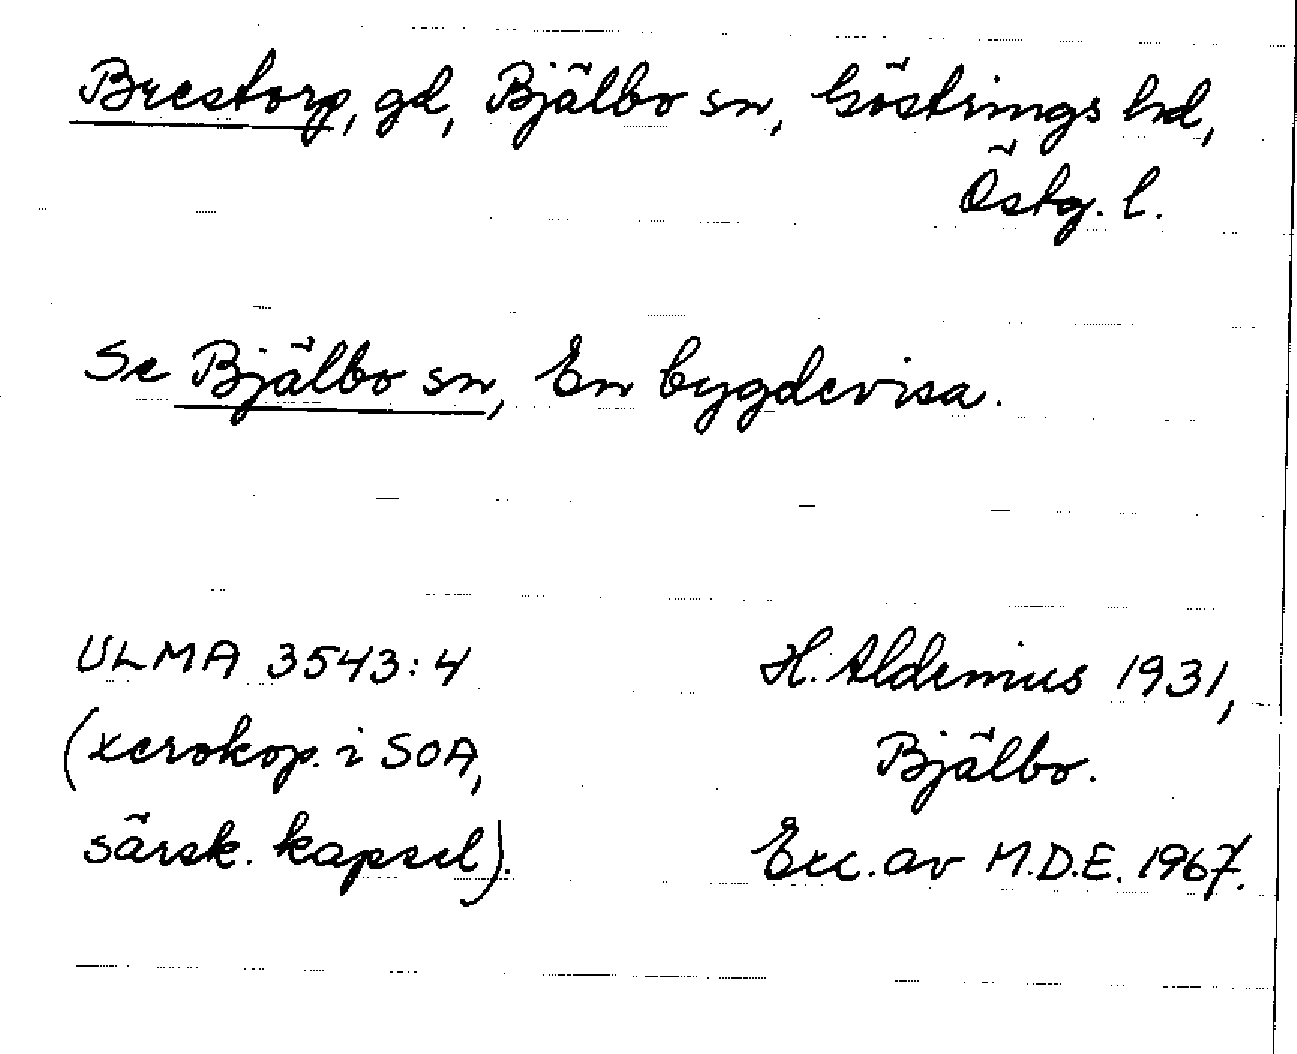 Brestorp, gd, Bjälbo sn, Göstrings hd,
Östg. l.
Se Bjälbo sn, En bygdevisa.
ULMA 3543:4
H. Aldemius 1931,
(xerokop. i SOA,
Bjälbo.
särsk. kapsel).
Exc. av M.D.E. 1967.